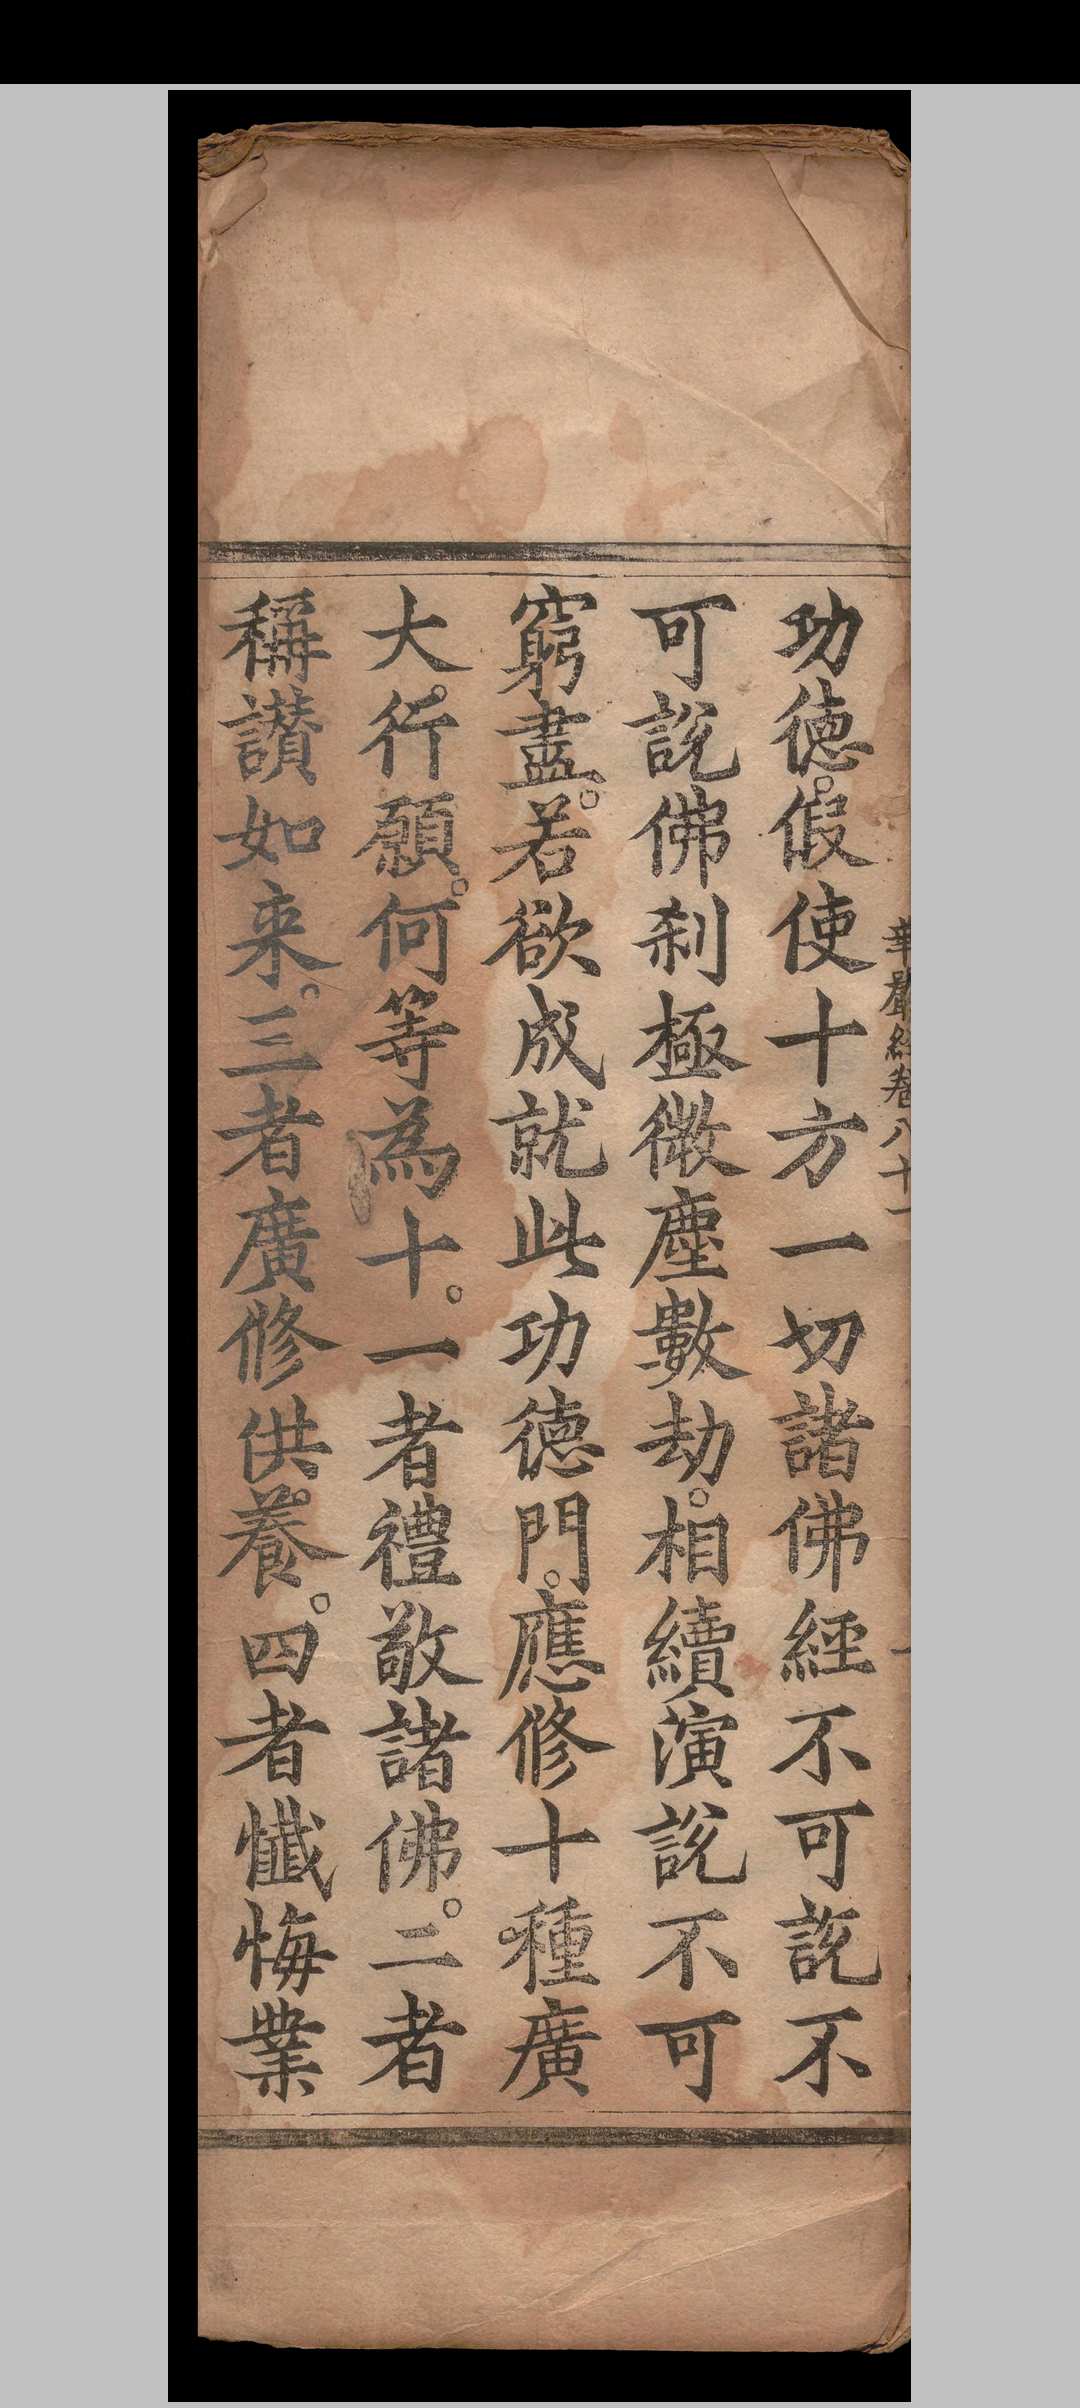 華嚴經卷八十一
一
功德假使十方一切諸佛經不可說不
可說佛剎極微塵數劫相續演說不可
窮盡若欲成就此功德門應修十種廣
大行願何等為十一者禮敬諸佛二者
稱讚如来三者廣修供養四者懺悔業